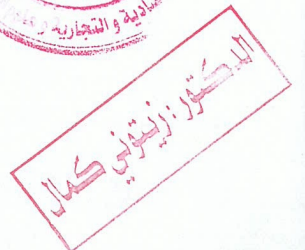 ادية و التجارية و
الدكتور: زيتوني كمال